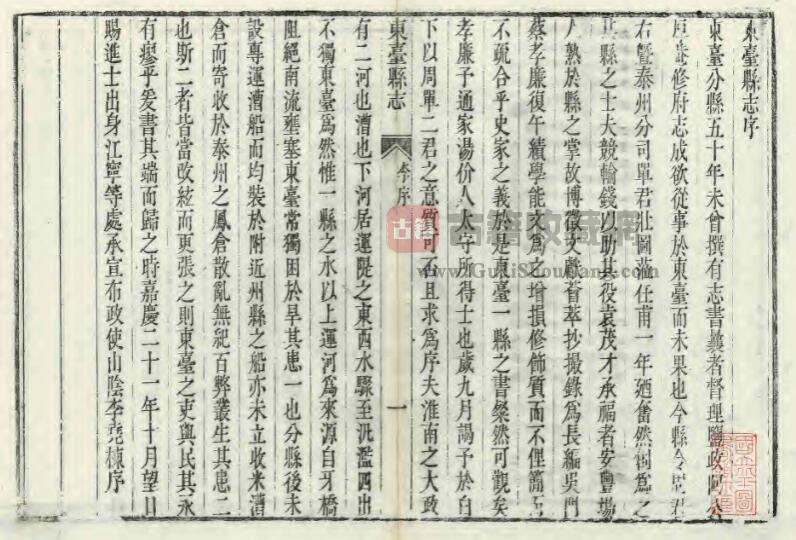 東臺縣志序
東臺分縣五十年未曾撰有志書曩者督理鹽政阿公
修府志成欲從事於東臺而未果也今縣令周君
右暨泰州分司單君壯圖蒞任甫一年廼奮然創為之
縣之士夫競輸錢以助其役袁茂才承福者安豐場
人熟於縣之掌故博徵文獻薈萃抄撮錄為長編吳門
蔡孝廉復午績學能文為之增損修飾質而不俚簡而
不疏合乎史家之義於是東臺一縣之書粲然可觀矣
孝廉予通家湯价人太守所得士也歲九月謁予於白
下以周單二君之意質可否且求為序夫淮南之大政
東臺縣志
李序
一
有二河也漕也下河居運隄之東西水驟至汎濫四出
不獨東臺為然惟一縣之水以上運河為來源自牙橋
阻絕南流壅塞東臺常獨困於旱其患一也分縣後未
設專運漕船而均裝於附近州縣之船亦未立收米漕
倉而寄收於泰州之鳳倉散亂無紀百弊叢生其患二
也斯二者皆當改絃而更張之則東臺之吏與民其永
有瘳乎爰書其端而歸之時嘉慶二十一年十月望日
賜進士出身江寧等處承宣布政使山陰李堯棟序
古籍收藏網
www.GuJiShouCang.com